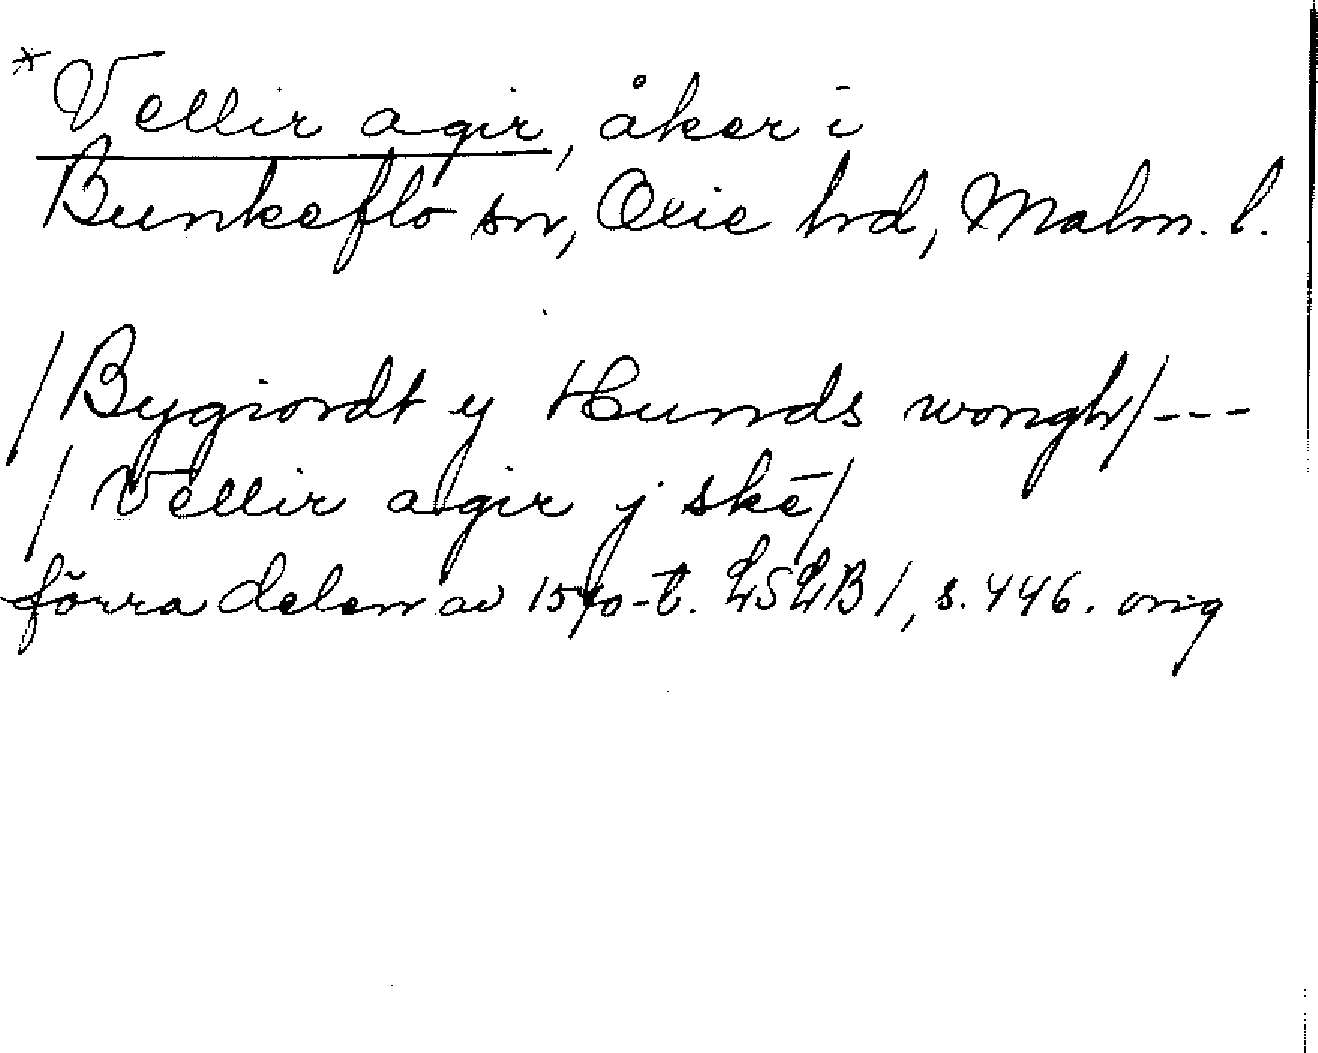 *Vellir agir, åker i
Bunkeflo sn, Oxie hd, Malm. l.
/Bygiordt y Hunds wongh/---
/Vellir agir j skē/
förra delen av 1540-t. LSLB 1, s. 446. orig